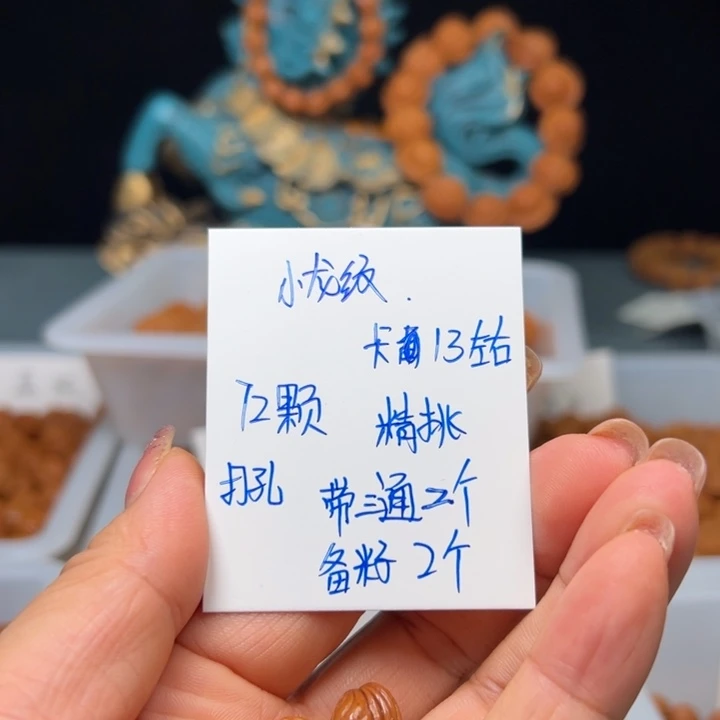 小龙纹.
卡 13左右
72颗 精挑
打孔 带三通2个
备籽 2个